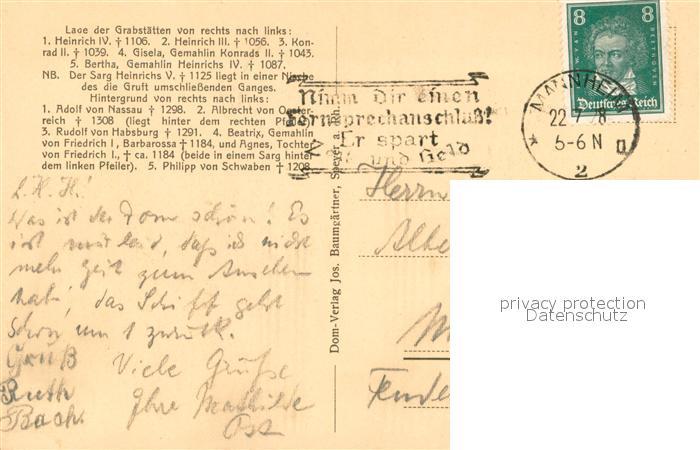 Lage der Grabstätten von rechts nach links:
1. Heinrich IV. † 1106. 2. Heinrich III. † 1056. 3. Kon-
rad II. † 1039. 4. Gisela, Gemahlin Konrads II. † 1043.
5. Bertha, Gemahlin Heinrichs IV. † 1087.
NB. Der Sarg Heinrichs V. † 1125 liegt in einer Nische
des die Gruft umschließenden Ganges.
Hintergrund von rechts nach links:
1. Adolf von Nassau † 1298. 2. Albrecht von Oester-
reich † 1308 (liegt hinter dem rechten Pfeiler).
3. Rudolf von Habsburg † 1291. 4. Beatrix, Gemahlin
von Friedrich I., Barbarossa † 1184, und Agnes, Tochter
von Friedrich I., † ca. 1184 (beide in einem Sarg hinter
dem linken Pfeiler). 5. Philipp von Schwaben † 1208
Nimm Dir einen
Fernsprechanschluß!
Er spart
und Geld
8 8
L. v. VAN BEETHOVEN
Deutsches Reich
MANNHEIM
22 7 28
5-6 N
2
L. H. H.!
Was ist der Dom schön! Es
ist mir leid, daß ich nicht
mehr Zeit zum Ansehen
hab', das Schiff geht
schon um 1 zurück.
Gruß
Ruth
Bach.
Viele Grüße
Ihre Mathilde
Ost
Dom-Verlag Jos. Baumgärtner, Speyer a. Rh.
Herrn
Albe
M
privacy protection
Datenschutz